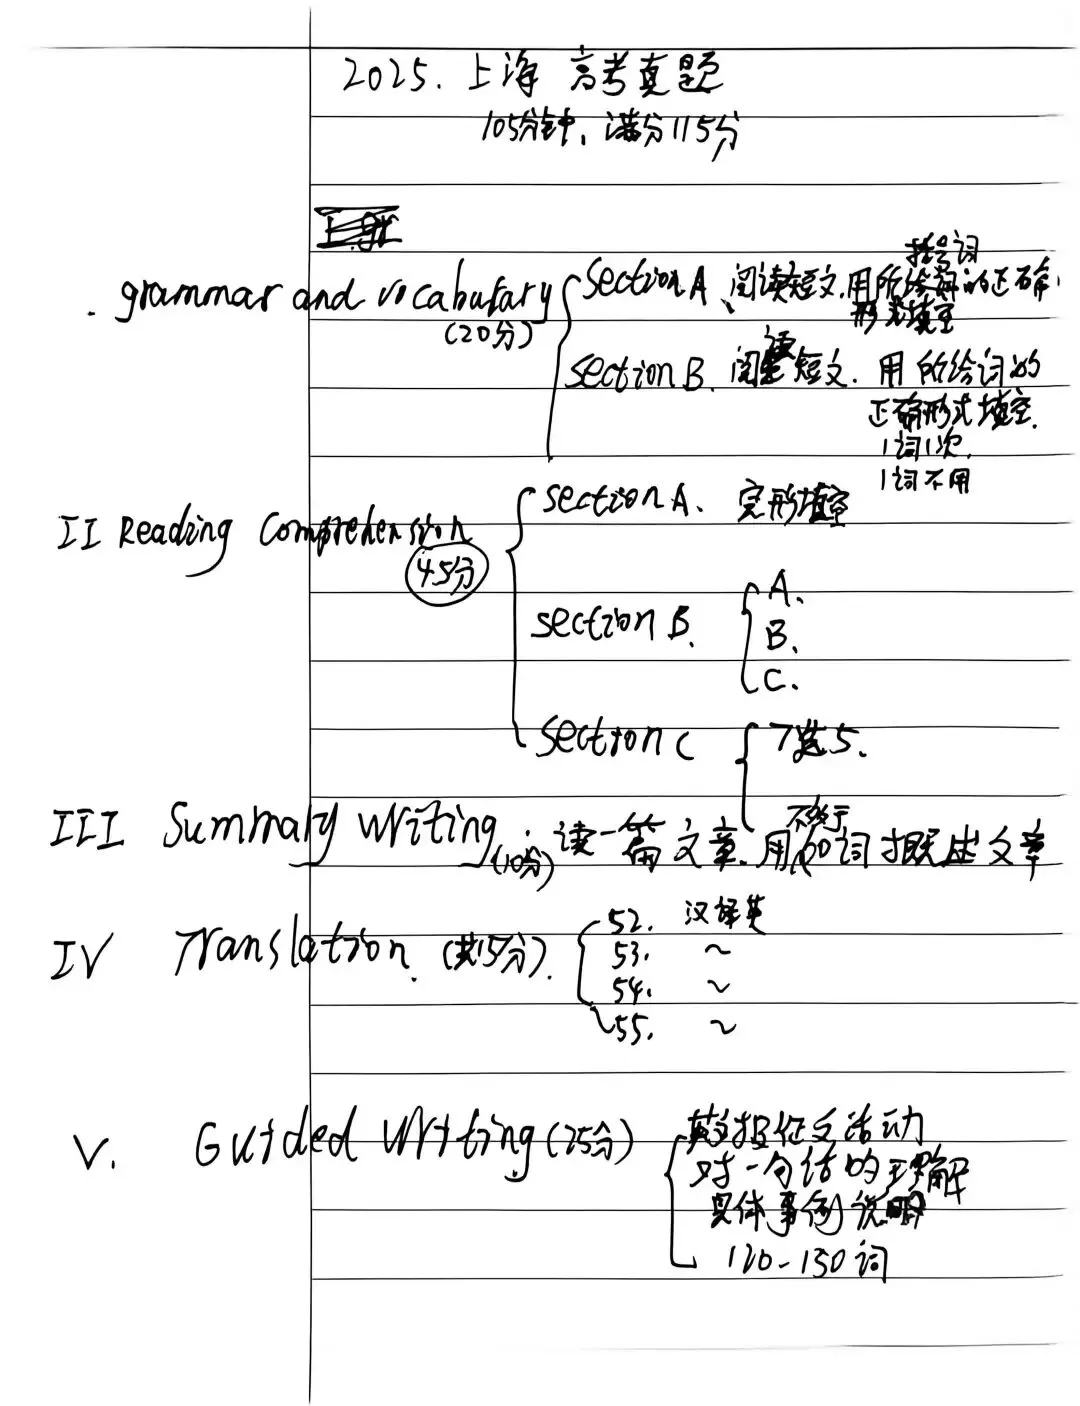 2025. 上海 高考真题
105分钟, 满分115分
. grammar and vocabulary (20分)
section A、阅读短文.用所给括号词的正确.
形式填空
section B. 阅读短文. 用所给词的
正确形式填空.
1词1次.
1词不用
II Reading Comprehension
45分
section A. 完形填空
section B.
A.
B.
C.
section C
7选5.
III Summary writing. (10分) 读一篇文章.用不多于60词概述文章
IV Translation. (共15分).
52. 汉译英
53. ~
54. ~
55. ~
V. Guided writing (25分)
英文报征文活动
对一句话的理解
具体事例说明
120-150词